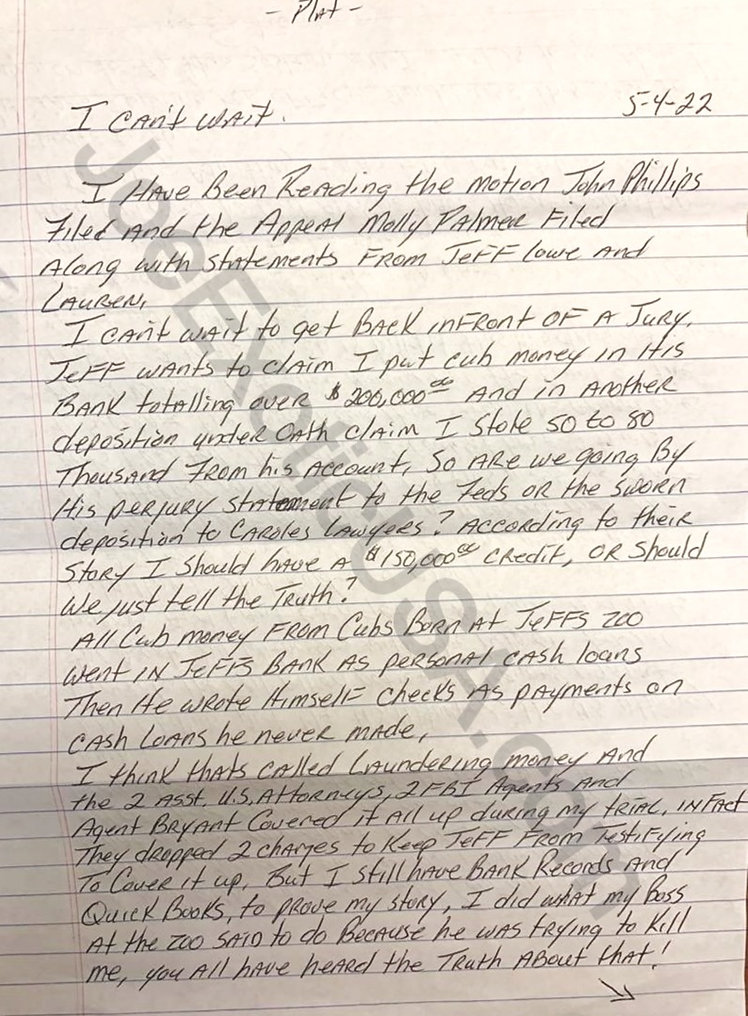 - Plat -
I CAN't WAit.
5-4-22
I HAVE Been Reading the motion John Phillips
Filed AND the Appeal Molly PALMER Filed
Along with statements FROM JEFF Lowe AND
LAUREN,
I CAN't WAit to get BACK inFRont OF A JURY.
JEFF WANts to CLAim I put cub money in His
BANK totAlling over $200,000.00 And in Another
deposition under OAth CLAim I Stole 50 to 80
Thousand FROM his Account, So ARE we going By
His perjury statement to the Feds OR the SWORN
deposition to CAROLES LAWYERS? According to their
Story I should have A $150,000.00 CREdit, OR should
We just tell the Truth?
All Cub money FROM Cubs BORN At JEFFS ZOO
Went IN JEFFS BANK AS personAl cAsh loans
Then He wrote HimselF checks AS pAyments on
CASH LOANS he never mADE,
I think thats CAlled LAundering money And
the 2 Asst. U.S. AttoRNeys, 2 FBI Agents And
Agent BRYANT Covered it All up during my tRIAL, IN FAct
They dropped 2 chARges to Keep JEFF FROM TestiFying
To Cover it up, But I still have BANK Records AND
QUICK BOOKS, to prove my story, I did what my Boss
At the ZOO SAID to do BECAUSE he WAS tRying to Kill
me, you All have heard the Truth ABout that!
JoeExoticUSA.com